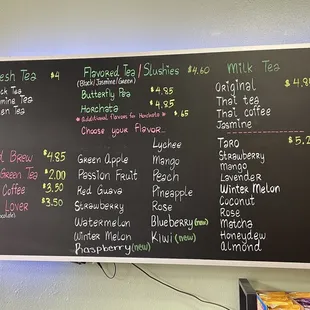 esh Tea $4
ck Tea
mine Tea
en Tea
d Brew $4.85
Green Tea $2.00
Coffee $3.50
Lover $3.50
Flavored Tea / Slushies $4.60
(Black/Jasmine/Green)
Butterfly Pea $4.85
Horchata $4.85
*Additional Flavors for Horchata $.65
Choose your Flavor...
Green Apple
Passion Fruit
Red Guava
Strawberry
Watermelon
Winter Melon
Raspberry (new)
Lychee
Mango
Peach
Pineapple
Rose
Blueberry (new)
Kiwi (new)
Milk Tea
Original $4.8
Thai tea
Thai coffee
Jasmine
Taro $5.2
Strawberry
Mango
Lavender
Winter Melon
Coconut
Rose
Matcha
Honeydew
Almond